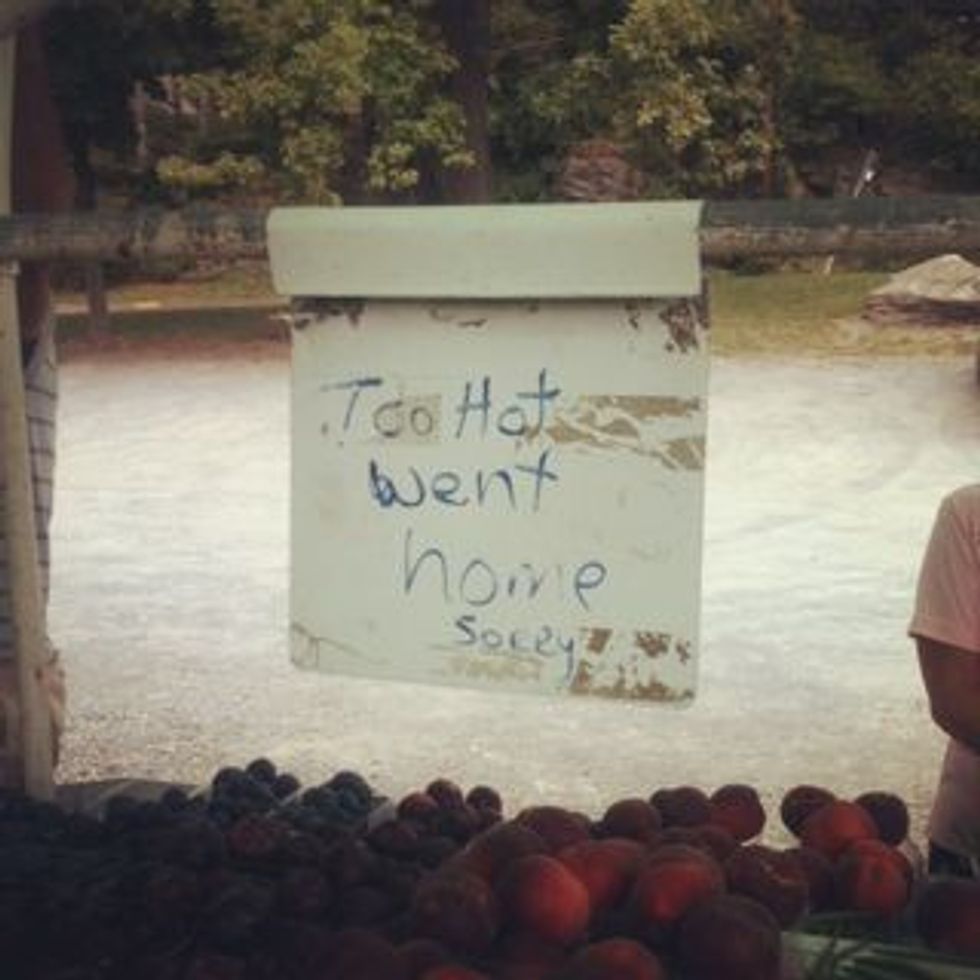 Too Hot
went
home
Sorry